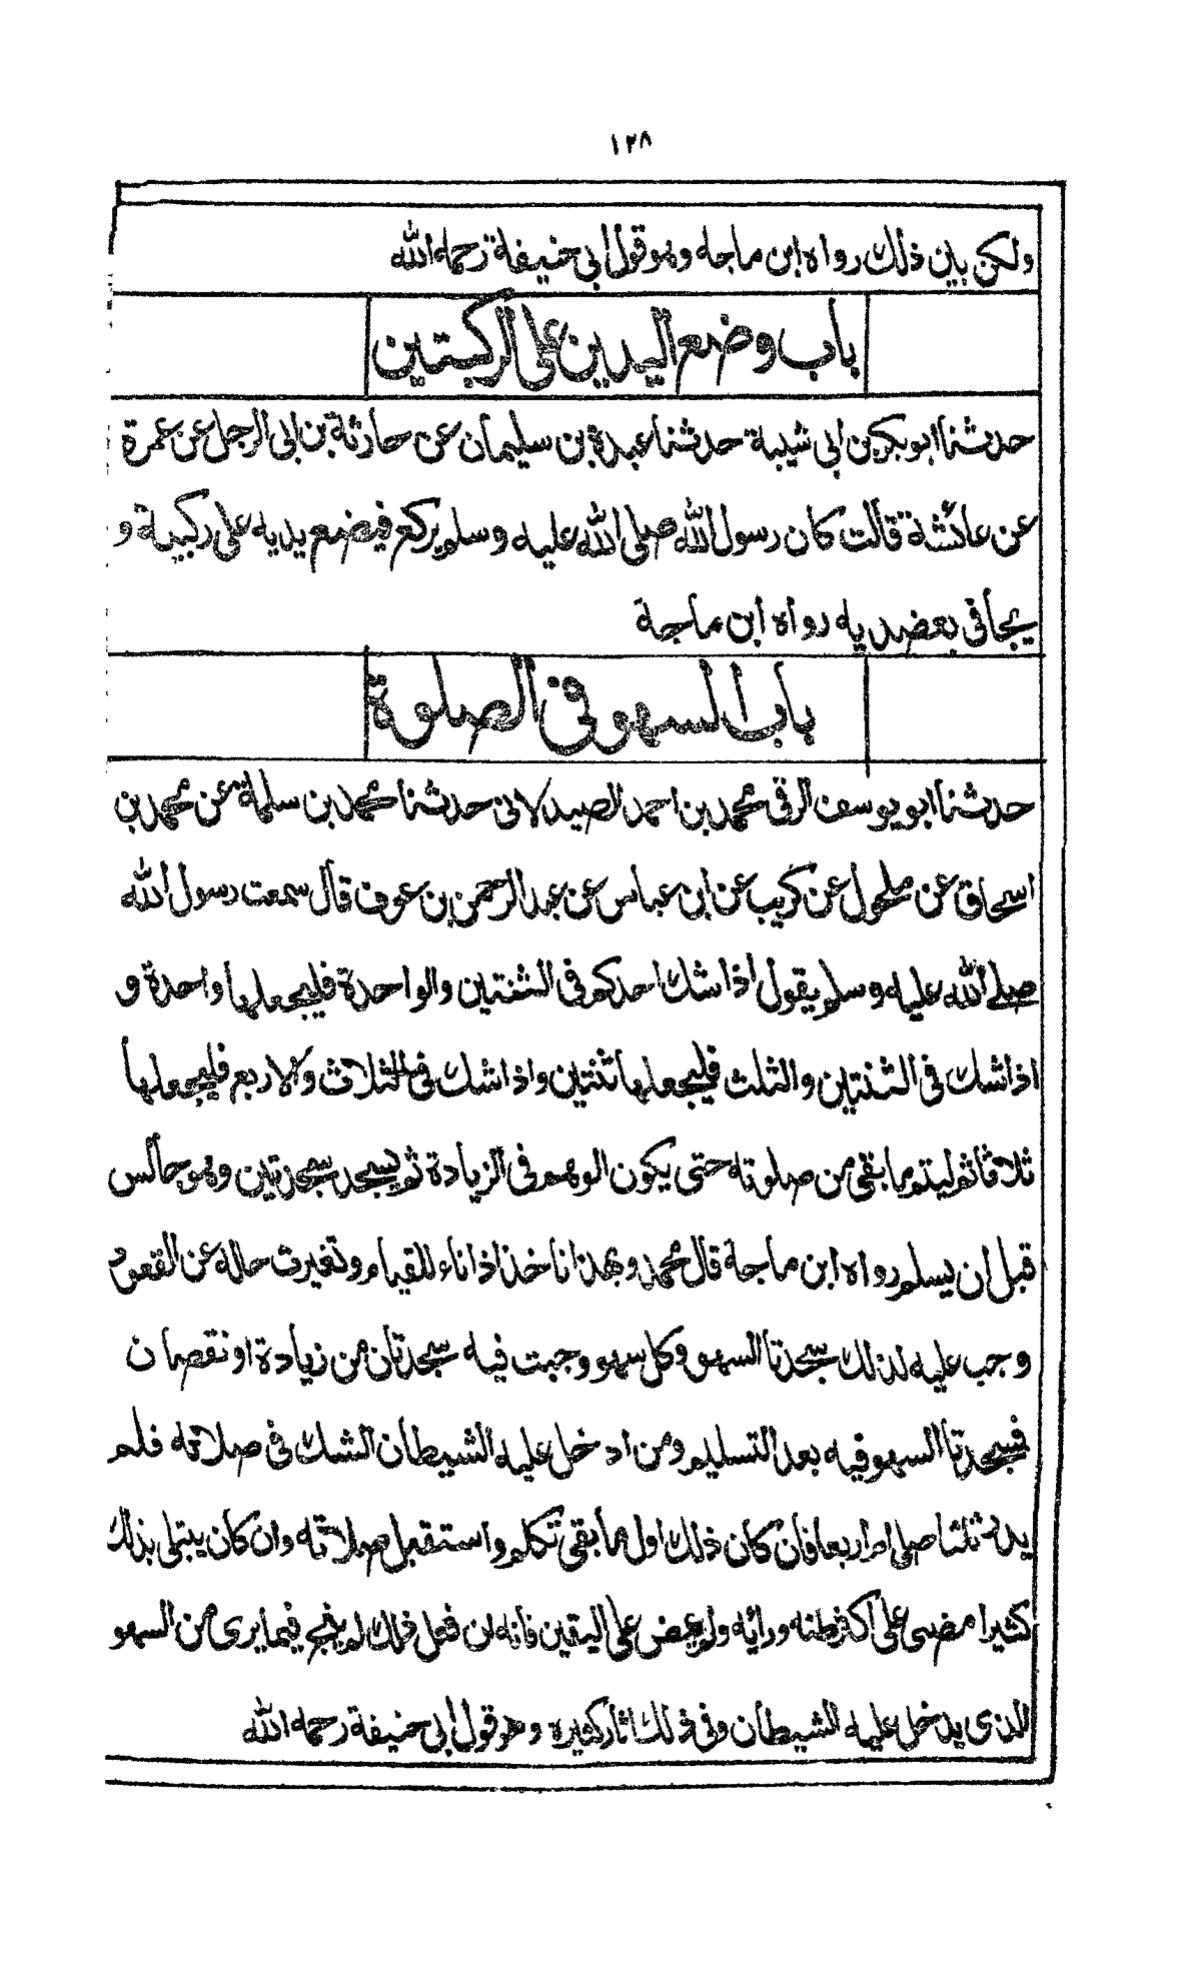 ١٢٨
ولكن بين ذلك رواه ابن ماجه وهو قول ابي حنيفة رحمه الله
باب وضع اليدين على الركبتين
حدثنا ابو بكر بن ابي شيبة حدثنا عبدة بن سليمان عن حارثة بن ابي الرجل عن عمرة
عن عائشة قالت كان رسول الله صلى الله عليه وسلم يركع فيضع يديه على ركبتيه و
يجافى بعضديه رواه ابن ماجة
باب السهو فى الصلوة
حدثنا ابو يوسف الرقى محمد بن احمد الصيدلانى حدثنا محمد بن سلمة عن محمد بن
اسحاق عن مكحول عن كريب عن ابن عباس عن عبد الرحمن بن عوف قال سمعت رسول الله
صلى الله عليه وسلم يقول اذا شك احدكم فى الثنتين والواحدة فليجعلها واحدة و
اذا شك فى الثنتين والثلث فليجعلها ثنتين واذا شك فى الثلاث والاربع فليجعلها
ثلاثا ثم ليتم ما بقى من صلوته حتى يكون الوهم فى الزيادة ثم يسجد سجدتين وهو جالس
قبل ان يسلم رواه ابن ماجة قال محمد وبهذا ناخذ اذا ناء للقيام وتغيرت حاله عن القعود
وجب عليه لذلك سجدتا السهو وكل سهو وجبت فيه سجدتان من زيادة او نقصان
فسجدتا السهو فيه بعد التسليم ومن ادخل عليه الشيطان الشك فى صلاته فلم
يدر ثلثا صلى ام اربعا فان كان ذلك اول ما بقى تكلم واستقبل صلاته وان كان يبتلى بذلك
كثيرا مضى على اكثر ظنه ورائه ولم يمض على اليقين فانه ان فعل ذلك لم ينج فيما يرى من السهو
الذى يدخل عليه الشيطان وفى ذلك اثار كثيره وهو قول ابي حنيفة رحمه الله